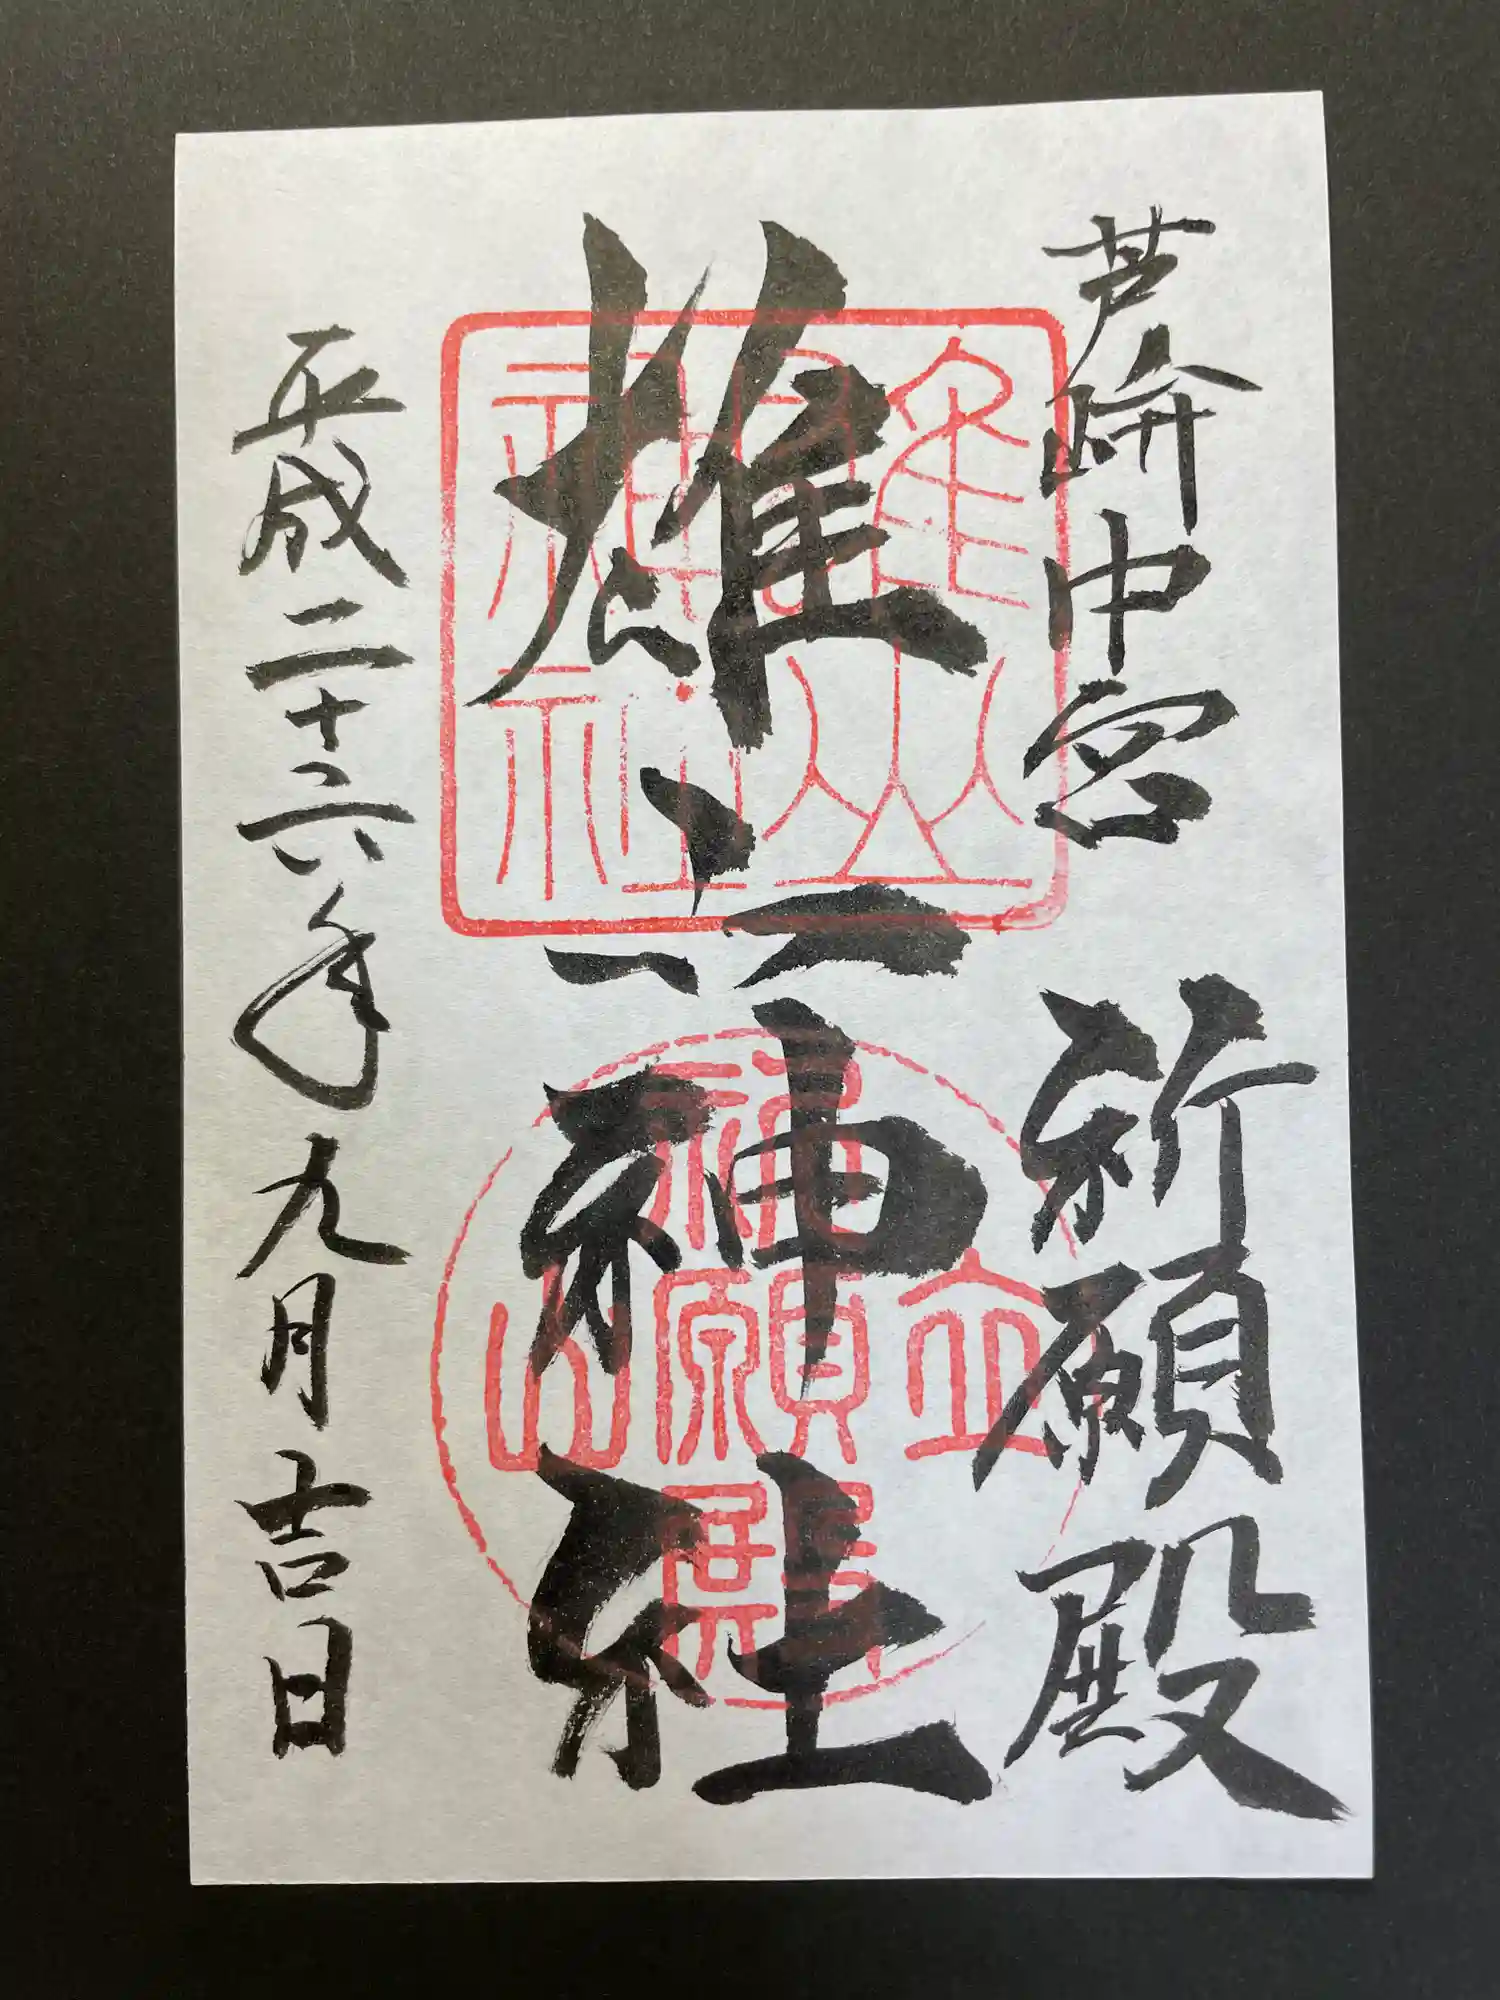 芦峅中宮 祈願殿
雄山神社
平成二十六年九月吉日
雄山神社
立山
祈願殿